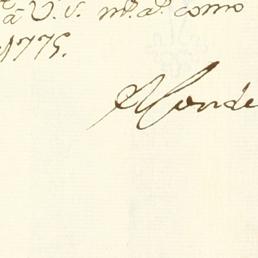 a V. S. m.s a.s como
1775.
Conde